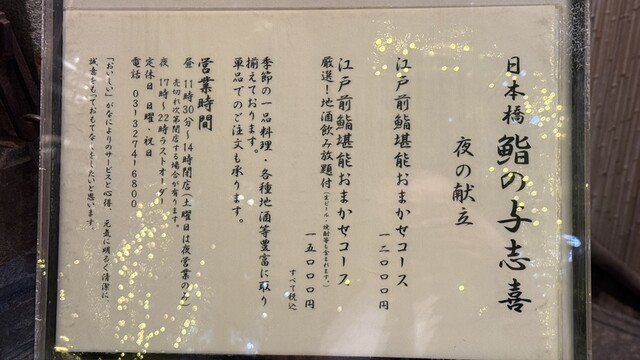 日本橋 鮨の与志喜
夜の献立
江戸前鮨堪能おまかせコース
一二〇〇〇円
江戸前鮨堪能おまかせコース
厳選!地酒飲み放題付(生ビール・焼酎等も含まれます。)
一五〇〇〇円
すべて税込
季節の一品料理・各種地酒等豊富に取り
揃えております。
単品でのご注文も承ります。
営業時間
昼 11時30分~14時閉店(土曜日は夜営業のみ)
売切れ次第閉店する場合が有ります。
夜 17時~22時ラストオーダー
定休日 日曜・祝日
電話 03-3274-6800
「おいしい」がなによりのサービスと心得、元気に明るく清潔に、
誠意をもっておもてなしをしたいと思います。